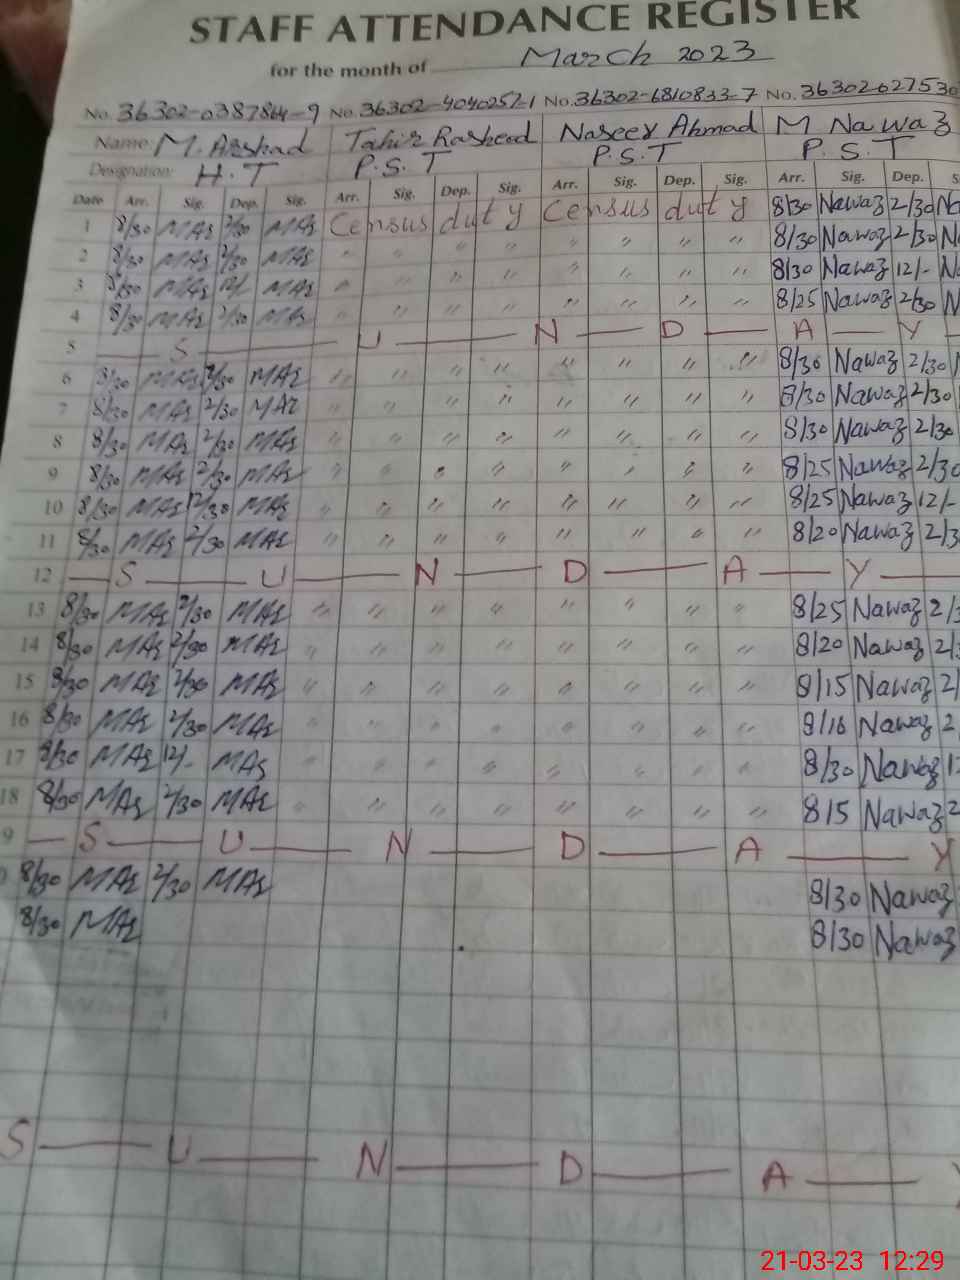 STAFF ATTENDANCE REGISTER
for the month of March 2023
No. 36302-0387864-9 No. 36302-4040257-1 No. 36302-6810833-7 No. 36302-027530
Name: M. Arshad Tahir Rasheed Naseer Ahmad M Nawaz
Designation: H.T P.S.T P.S.T P.S.T
Date Arr. Sig. Dep. Sig. Arr. Sig. Dep. Sig. Arr. Sig. Dep. Sig. Arr. Sig. Dep. S
1 8/30 MAs 2/30 MAs Census duty Census duty 8/30 Nawaz 2/30 Na
2 8/30 MAs 2/30 MAs " " " " " " " " 8/30 Nawaz 2/30 N
3 8/30 MAs 12/- MAs " " " " " " " " 8/30 Nawaz 12/- N
4 8/30 MAs 2/30 MAs " " " " " " " " 8/25 Nawaz 2/30 N
5 S U N D A Y
6 8/30 MAs 2/30 MAs " " " " " " " " 8/30 Nawaz 2/30 N
7 8/30 MAs 2/30 MAs " " " " " " " " 8/30 Nawaz 2/30
8 8/30 MAs 2/30 MAs " " " " " " " " 8/30 Nawaz 2/30
9 8/30 MAs 2/30 MAs " " " " " " " " 8/25 Nawaz 2/30
10 8/30 MAs 12/30 MAs " " " " " " " " 8/25 Nawaz 12/-
11 8/30 MAs 2/30 MAs " " " " " " " " 8/20 Nawaz 2/3
12 S U N D A Y
13 8/30 MAs 2/30 MAs " " " " " " " " 8/25 Nawaz 2/3
14 8/30 MAs 2/30 MAs " " " " " " " " 8/20 Nawaz 2/3
15 8/30 MAs 2/30 MAs " " " " " " " " 8/15 Nawaz 2/
16 8/30 MAs 2/30 MAs " " " " " " " " 8/16 Nawaz 2
17 8/30 MAs 12/- MAs " " " " " " " " 8/30 Nawaz 12
18 8/30 MAs 2/30 MAs " " " " " " " " 8/5 Nawaz 2
9 S U N D A Y
8/30 MAs 2/30 MAs 8/30 Nawaz
8/30 MAs 8/30 Nawaz
S U N D A Y
21-03-23 12:29